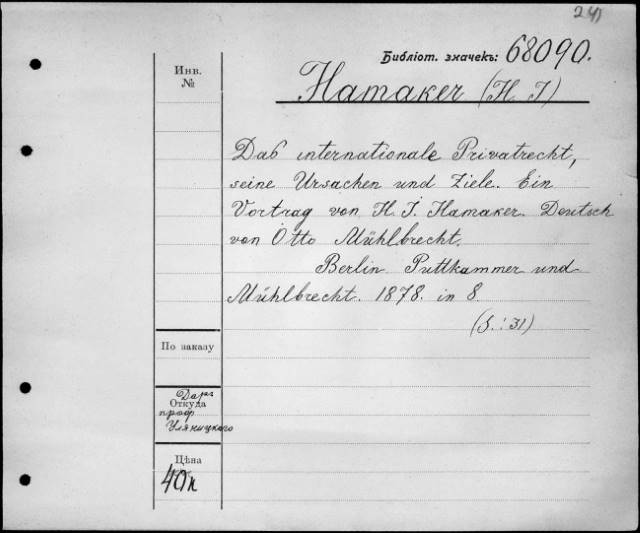 241
Библіот. значекъ: 68090.
Инв.
№
Hamaker (H. J)
Das internationale Privatrecht,
seine Ursachen und Ziele. Ein
Vortrag von H. J. Hamaker. Deutsch
von Otto Mühlbrecht.
Berlin Puttkammer und
Mühlbrecht. 1878. in 8.
(S.: 31)
По заказу
Даръ
Откуда
проф
Уляницкаго
Цѣна
40 к